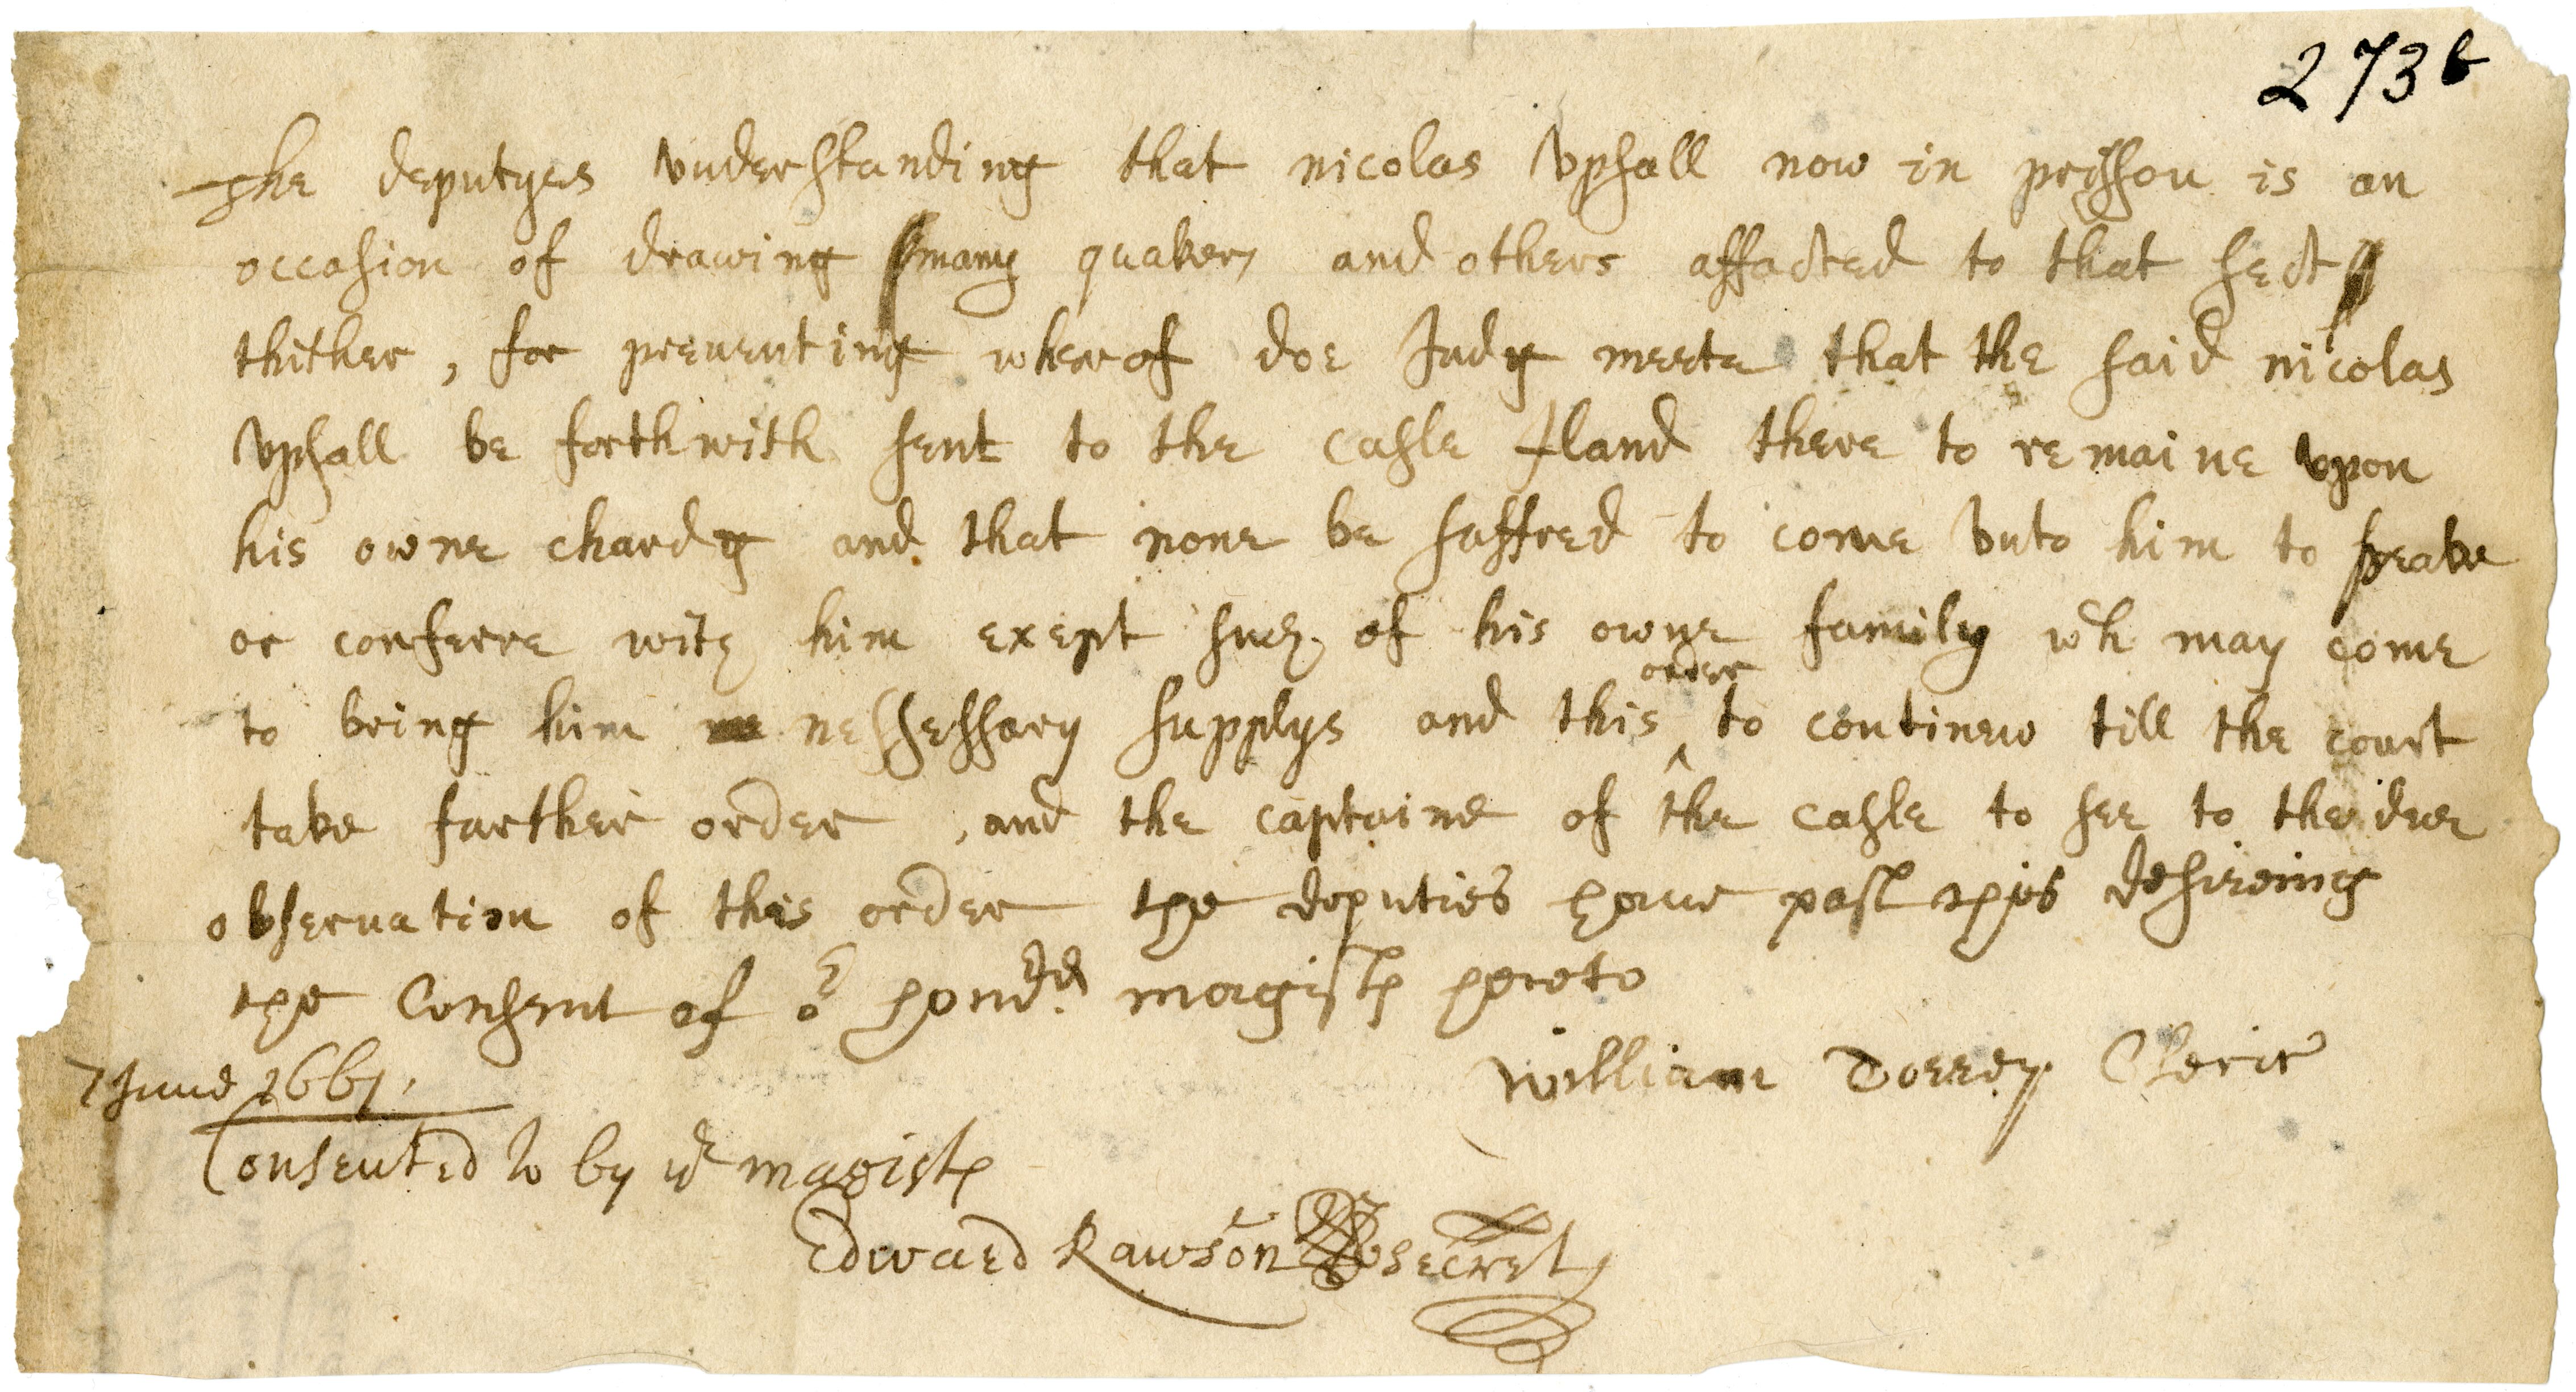 273b
The deputyes vnderstanding that nicolas Vpsall now in prisson is an
occasion of drawing many quakers and others affacted to that sect
thither, for preuenting wherof doe Judg meete that the said nicolas
Vpsall be forthwith sent to the casle Iland there to remaine vpon
his owne chardg and that none be suffred to come vnto him to speake
or conferre with him exept such of his owne family wch may come
to bring him nessessary supplys and this order to continew till the court
take farther order, and the captaine of the casle to see to the due
observation of this order the deputies haue past this desireing
the Consent of or honord magists hereto
William Torrey Cleric
7 June 1661.
Consented to by ye magists
Edward Rawson secrety